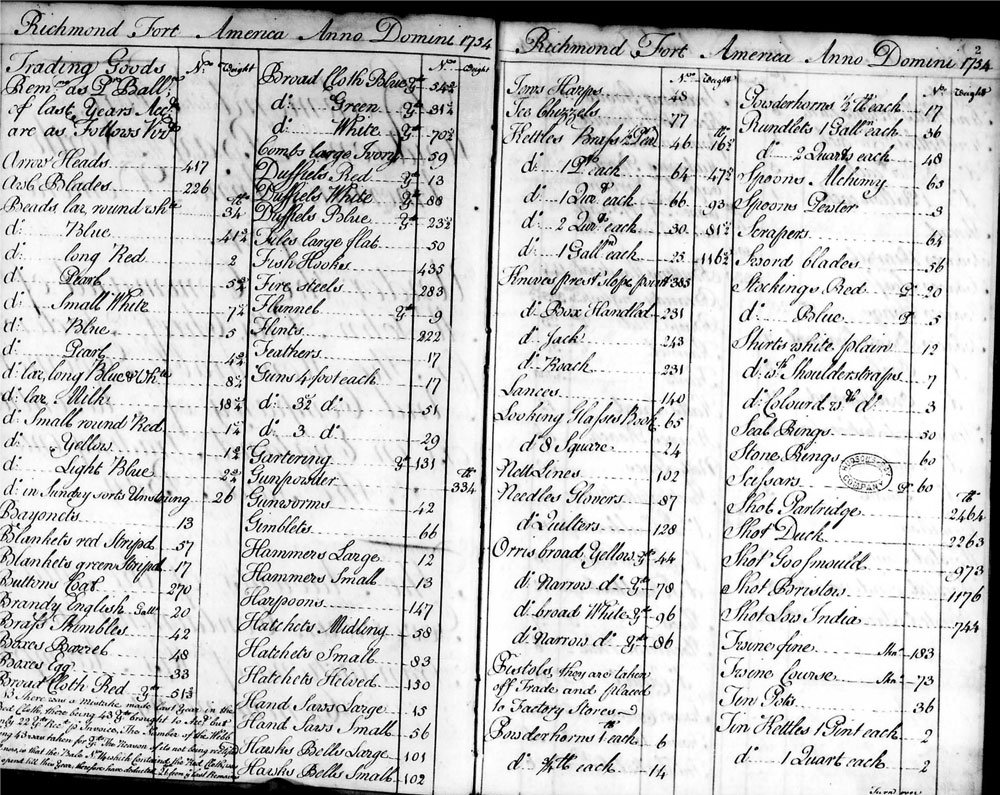 Richmond Fort America Anno Domini 1754
Trading Goods No. Weight
Remg as Pr Ball:
of last Years Acct
are as Follows Vizt
Arrow Heads 417
Awl Blades 226
Beads lar. round whte lb 34
do: Blue 41½
do: long Red 2
do: Pearl 5¾
do: Small White 7¼
do: Blue 5
do: Pearl 4¾
do: lar. long Blue & Whte 8¼
do: lar. Milk 18¼
do: Small round Red 1¼
do: Yellow 1¾
do: Light Blue 2¾
do: in Sunday sorts Unstrung 26
Bayonets 13
Blankets red Stripd 57
Blankets green Stripd 17
Buttons Coat 270
Brandy English Galls 20
Brass Thimbles 42
Boxes Barrel 48
Boxes Egg 33
Broad Cloth Red Yds 51½
There was a Mistake made last Year in the
Red Cloth, there being 43 Yds brought to Acct but
only 22 Yds Recd p Invoice, The Number of the Bale
being 43 was taken for Yds The Reason of its not being rectified
No. Weight
Broad Cloth Blue Yds 54½
do: Green Yds 31¼
do: White Yds 70½
Combs large Ivory 59
Duffels Red Yds 13
Duffels White Yds 88
Duffels Blue Yds 23½
Files large flat 50
Fish Hooks 435
Fire steels 283
Flannel Yds 9
Flints 222
Feathers 17
Guns 4 foot each 17
do: 3½ do 51
do: 3 do 29
Gartering Yds 131
Gunpowder lb 334
Gunworms 42
Gimblets 66
Hammers Large 12
Hammers Small 13
Harpoons 147
Hatchets Midling 58
Hatchets Small 83
Hatchets Helved 150
Hand Saws Large 15
Hand Saws Small 56
Hawks Bells Large 101
Hawks Bells Small 102
2
Richmond Fort America Anno Domini 1754
No. Weight
Jews Harps 48
Ice Chizzels 77
Kettles Brass 46 16½
do: 1 Pt each 64 47½
do: 1 Qurt each 66 93
do: 2 Qurts each 30 81½
do: 1 Galln each 23 116½
Knives prest slope point 385
do: Box Handled 231
do: Jack 243
do: Roach 231
Lances 140
Looking Glasses Book 65
do 8 Square 24
Nett Lines 102
Needles Glovers 87
do: Quilters 128
Orris broad Yellow Yds 44
do: Narrow do: Yds 78
do: broad White Yds 96
do: Narrow do: Yds 86
Pistols, they are taken
off Trade and placed
to Factory Stores
Powderhorns 1 lb each 6
do: ¾ lb each 14
No. Weight
Powderhorns ½ lb each 17
Rundlets 1 Galln each 36
do: 2 Quarts each 48
Spoons Alchimy 63
Spoons Pewter 3
Scrapers 64
Sword blades 56
Stockings Red Pr 20
do: Blue Pr 5
Shirts white plain 12
do: wth Shoulderstraps 7
do: Colourd wth do: 3
Seal Rings 50
Stone Rings 60
HUDSON'S BAY
COMPANY
Scissars Pr 60
Shot Partridge lb 2464
Shot Duck 2263
Shot Goosmould 973
Shot Bristow 1176
Shot Low India 744
Twine fine Skns 183
Twine Course Skns 73
Tin Pots 36
Tin Kettles 1 Pint each 2
do: 1 Quart each 2
Turn over